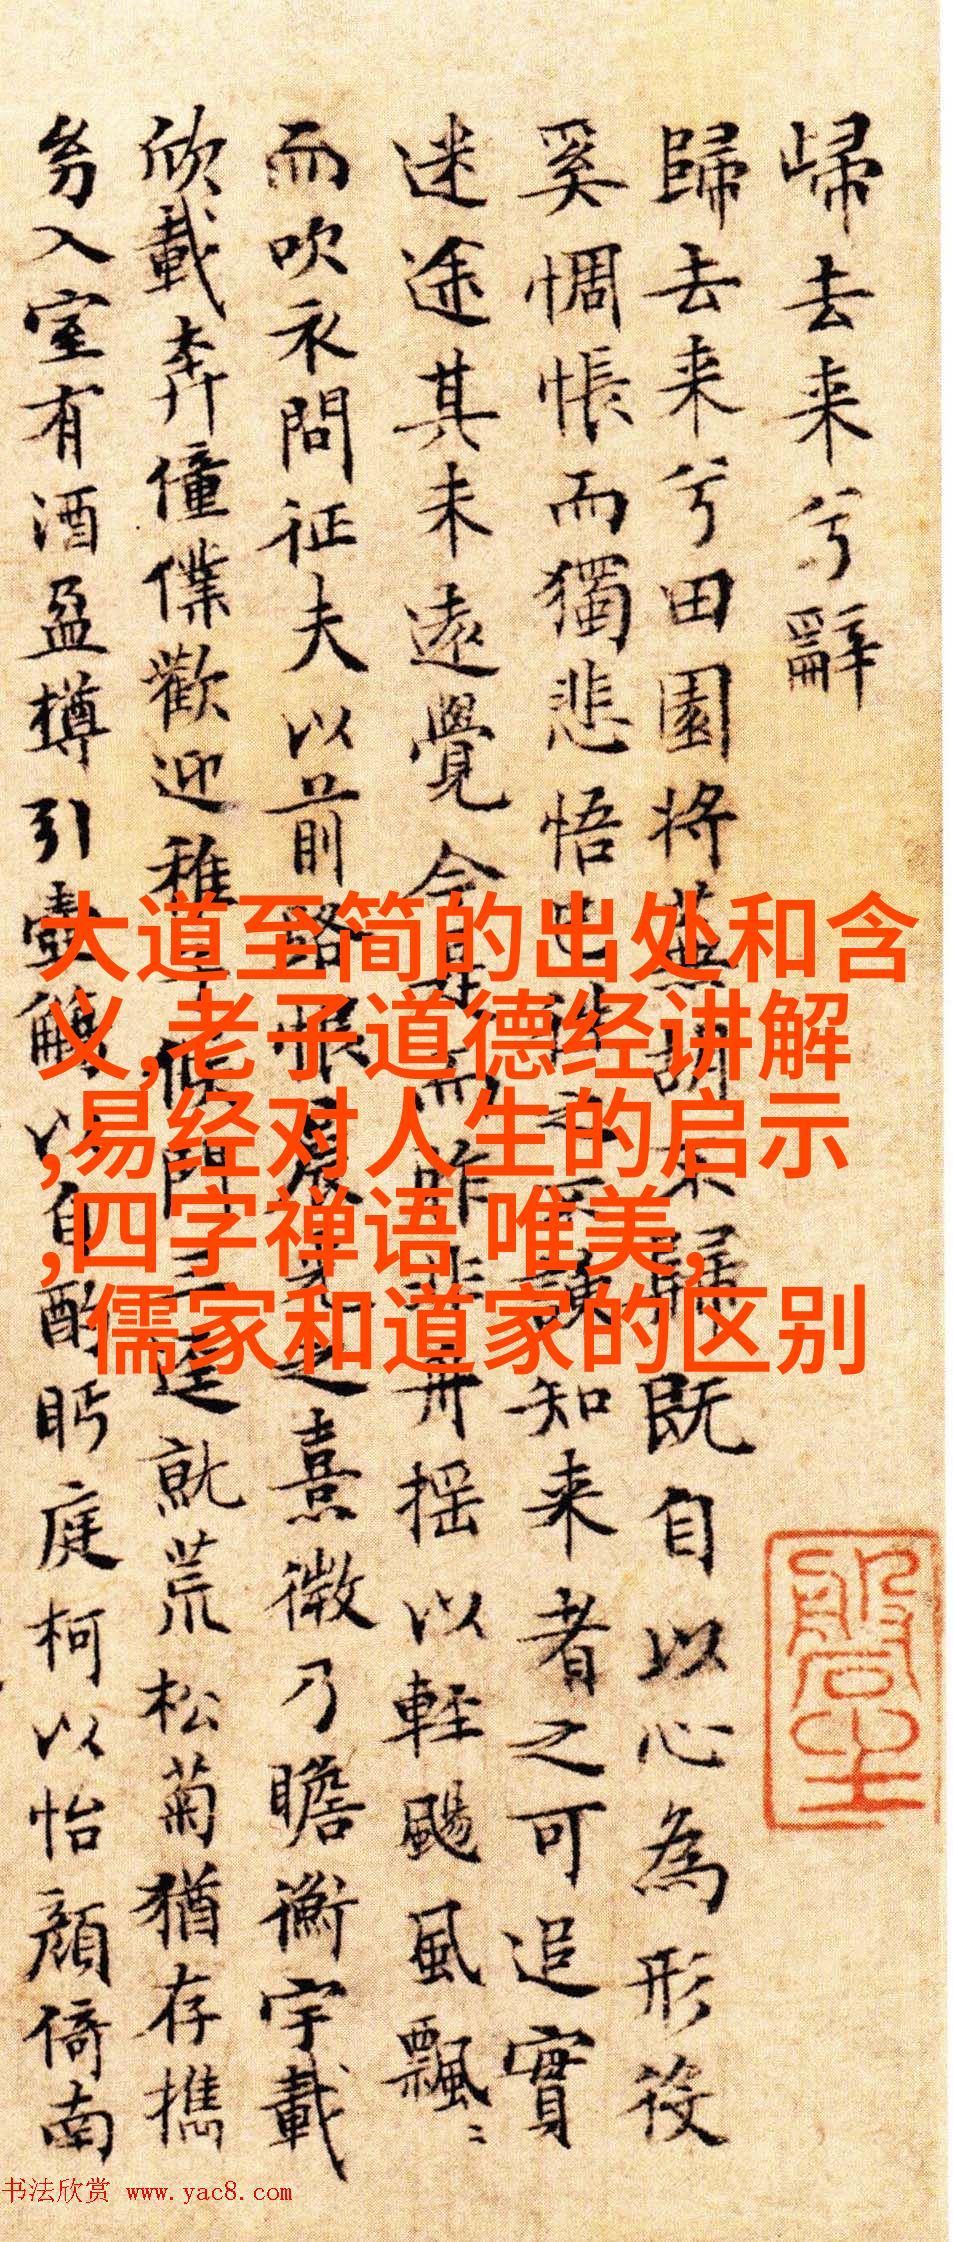 㱕去来兮辭
歸去来兮田園将蕪胡不歸既自以心為形役
奚惆悵而獨悲悟已往之不諫知来者之可追實
迷途其未遠覺今是而昨非舟揺以軽颺風飄〻
而吹衣問征夫以前路恨晨光之熹微乃瞻衡宇載
欣載奔僮僕歡迎稚子候門三逕就荒松菊猶存携
㓜入室有酒盈樽引壺觴以自酌眄庭柯以怡顔倚南
大道至简的出处和含
义,老子道德经讲解
,易经对人生的启示
,四字禅语 唯美,
儒家和道家的区别
书法欣赏 www.yac8.com